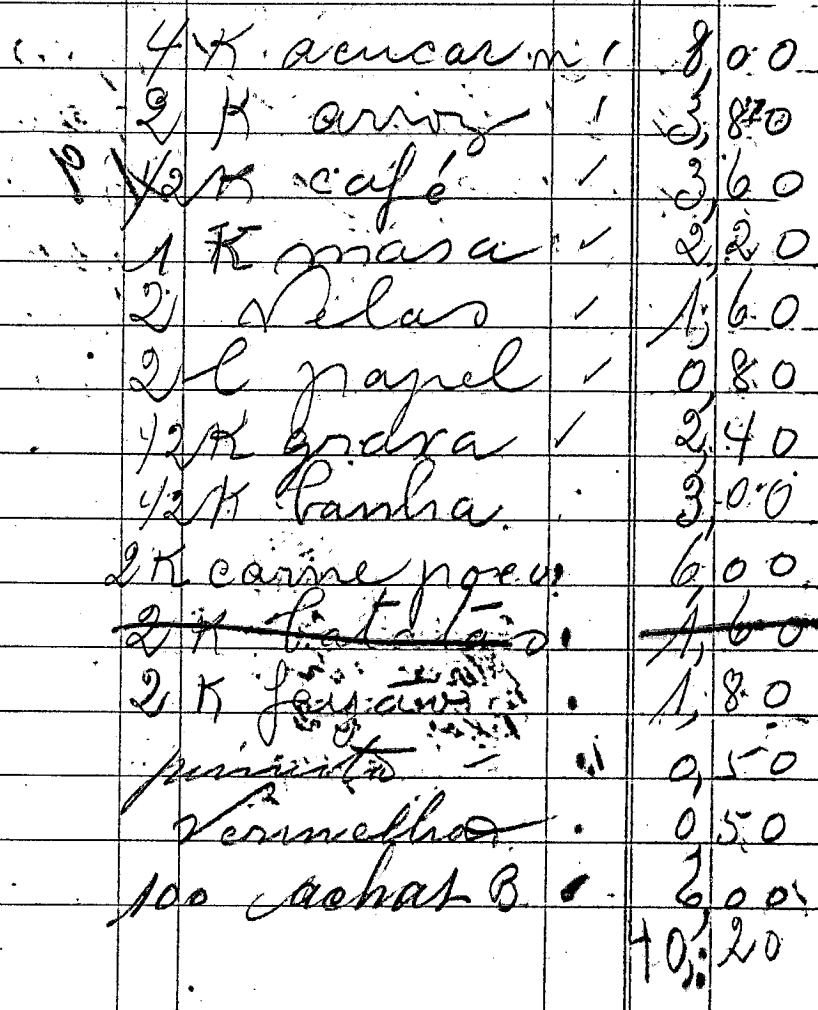 4 K acucar n 8,00
2 K arroz 3,80
1/2 K café 3,60
1 K masa 2,20
2 Velas 1,60
2 l papel 0,80
1/2 K graxa 2,40
1/2 K banha 3,00
2 K carne 6,00
2 K batatas 1,60
2 K 1,80
0,50
Vermelho 0,50
100 achat B 6,00
40,20